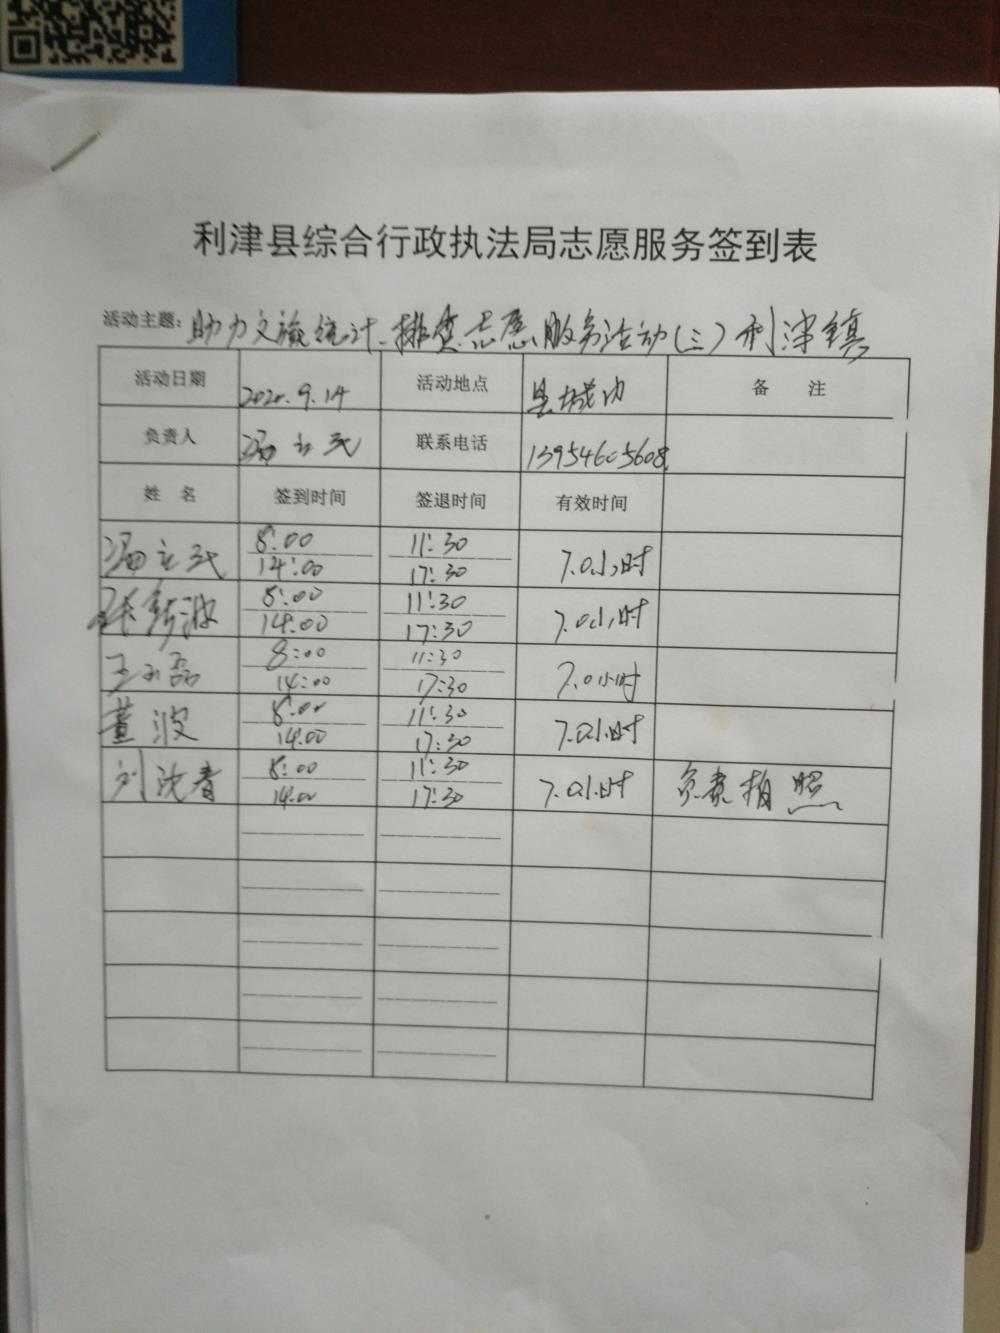 利津县综合行政执法局志愿服务签到表
活动主题:助力文旅统计、排查志愿服务活动(三)利津镇
活动日期 2020.9.14 活动地点 县城内 备 注
负责人 冯立民 联系电话 13954605608
姓 名 签到时间 签退时间 有效时间
冯立民 8:00 11:30 7.0小时
14:00 17:30
8:00 11:30 7.0小时
14:00 17:30
8:00 11:30 7.0小时
14:00 17:30
董波 8:00 11:30 7.0小时
14:00 17:30
8:00 11:30 7.0小时 负责拍照
14:00 17:30